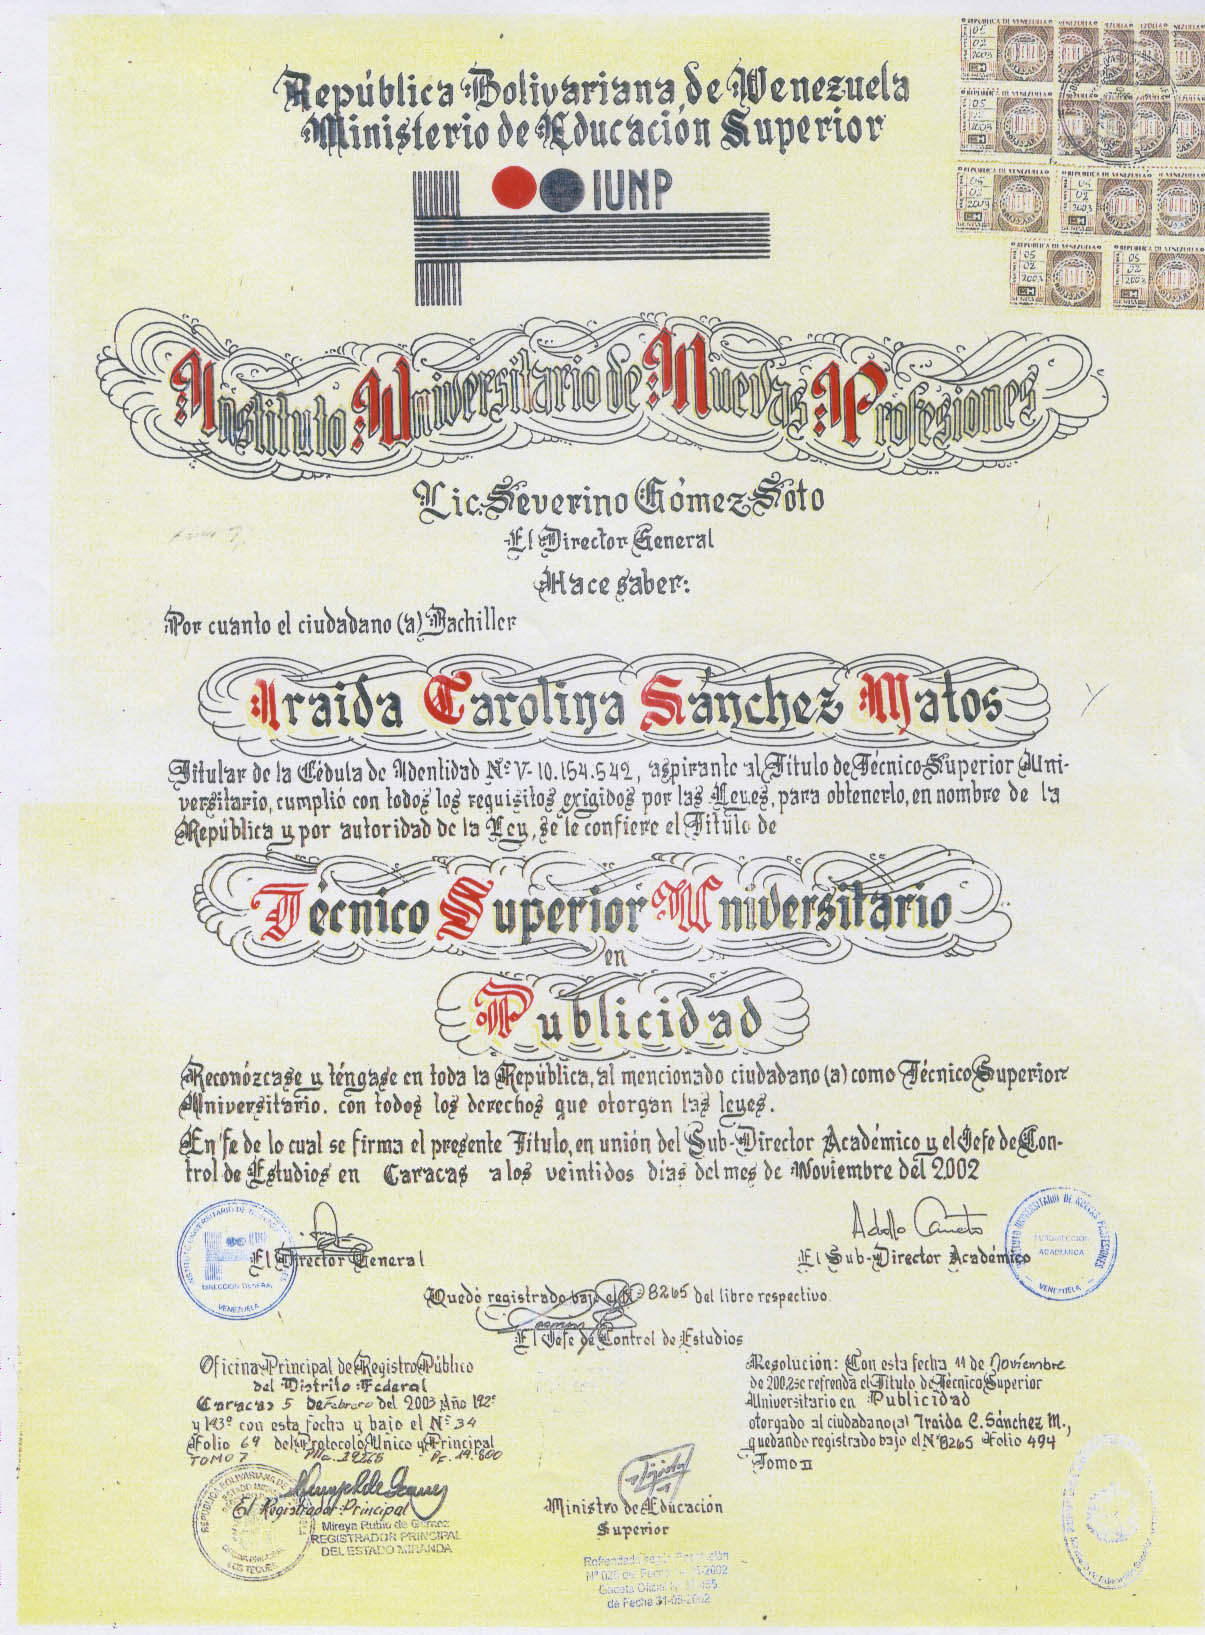 República Bolivariana de Venezuela
Ministerio de Educación Superior
IUNP
Instituto Universitario de Nuevas Profesiones
Lic. Severino Gómez Soto
El Director General
Hace saber:
Por cuanto el ciudadano (a) Bachiller
Iraida Carolina Sánchez Matos
Titular de la Cédula de Identidad Nº V-10.154.542, aspirante al Título de Técnico Superior Uni-
versitario, cumplió con todos los requisitos exigidos por las Leyes, para obtenerlo, en nombre de la
República y por autoridad de la Ley, se le confiere el Título de
Técnico Superior Universitario
en
Publicidad
Reconózcase y téngase en toda la República, al mencionado ciudadano (a) como Técnico Superior
Universitario. con todos los derechos que otorgan las leyes.
En fe de lo cual se firma el presente Título, en unión del Sub-Director Académico y el Jefe de Con-
trol de Estudios en Caracas a los veintidos días del mes de Noviembre del 2.002
El Director General
El Sub-Director Académico
DIRECCION GENERAL
VENEZUELA
ACADEMICA
VENEZUELA
Quedó registrado bajo el Nº 8265 del libro respectivo.
El Jefe de Control de Estudios
Oficina Principal de Registro Público
del Distrito Federal
Caracas 5 de Febrero del 2003 Año 192º
y 143º con esta fecha y bajo el Nº 34
Folio 69 del Protocolo Único y Principal
TOMO 7
El Registrador Principal
Mireya Rubio de Gómez
REGISTRADOR PRINCIPAL
DEL ESTADO MIRANDA
Resolución: Con esta fecha 11 de Noviembre
de 200,2 se refrenda el Título de Técnico Superior
Universitario en Publicidad
otorgado al ciudadano (a) Iraida C. Sánchez M.,
quedando registrado bajo el Nº 8265 Folio 494
Tomo II
Ministro de Educación
Superior
de Fecha